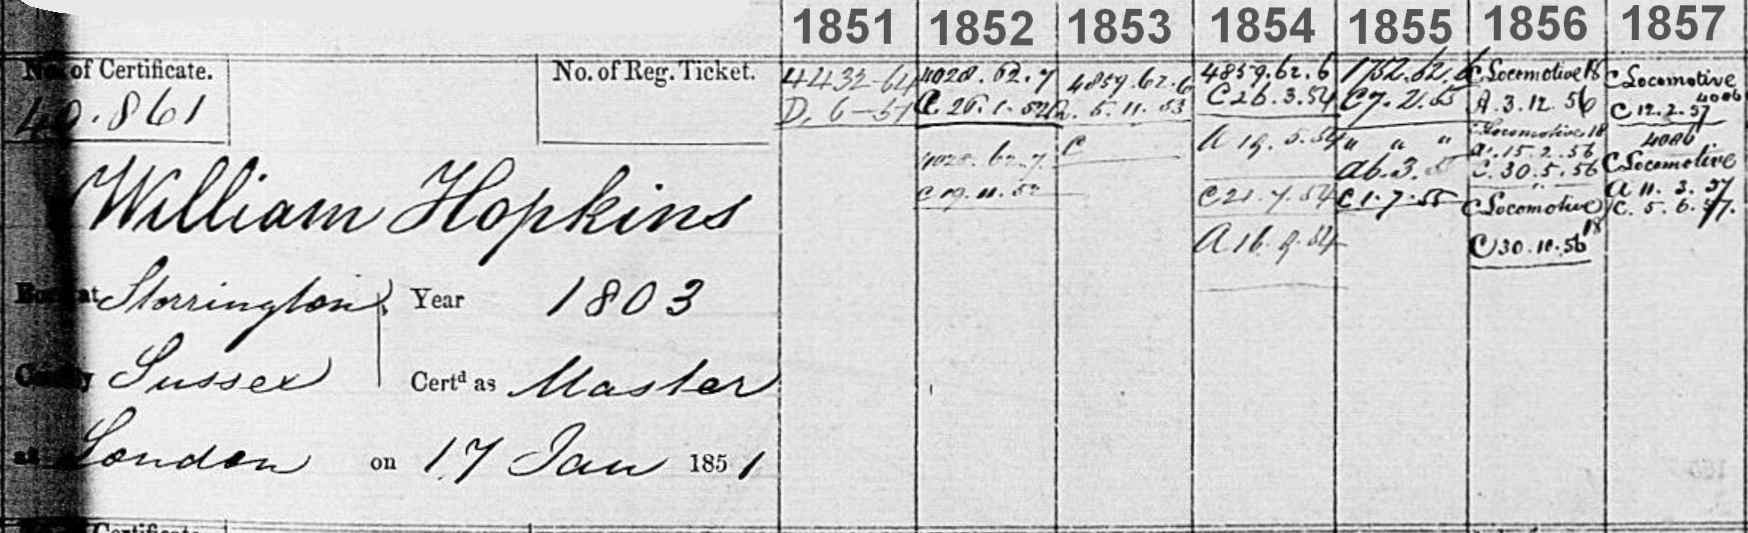 1851 1852 1853 1854 1855 1856 1857
No. of Certificate.
40.861
No. of Reg. Ticket.
William Hopkins
Born at Storrington
Year 1803
County Sussex
Certd as Master
at London on 17 Jan 1851
4432-64
D. 6-51
4028.62.7
C. 26.1.52
4028.62.7
C 19.11.52
4859.62.6
5.11.53
C
4859.62.6
C 26.3.54
A 19.5.54
C 21.7.54
A 16.9.54
1752.62.6
C 7.2.55
" " "
C 1.7.55
C Locomotive 18
A.3.12.56
Locomotive 18
15.2.56
C.30.5.56
C Locomotive 18
C 30.10.56
C Locomotive
4006
C 12.2.57
4006
C Locomotive
A 11.3.57
C. 5.6.57.
Certificate.